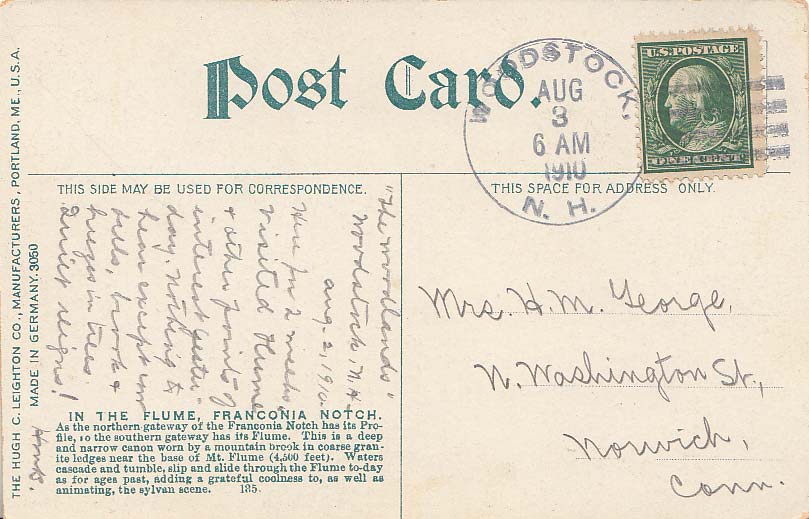 THE HUGH C. LEIGHTON CO., MANUFACTURERS, PORTLAND, ME., U.S.A.
MADE IN GERMANY. 3050
Post Card.
WOODSTOCK,
AUG
3
6 AM
1910
N. H.
U.S. POSTAGE
ONE CENT
THIS SIDE MAY BE USED FOR CORRESPONDENCE.
THIS SPACE FOR ADDRESS ONLY.
"The Woodlands"
Woodstock, N.H.
Aug. 2, 1910.
Here for 2 weeks.
Visited Flume
& other points of
interest yester-
day. Nothing to
hear except cow
bells, brook &
breezes in trees.
Quiet reigns!
Mrs. H. M. George,
N. Washington St.,
Norwich,
Conn.
IN THE FLUME, FRANCONIA NOTCH.
As the northern gateway of the Franconia Notch has its Pro-
file, so the southern gateway has its Flume. This is a deep
and narrow canon worn by a mountain brook in coarse gran-
ite ledges near the base of Mt. Flume (4,500 feet). Waters
cascade and tumble, slip and slide through the Flume to-day
as for ages past, adding a grateful coolness to, as well as
animating, the sylvan scene. 135.